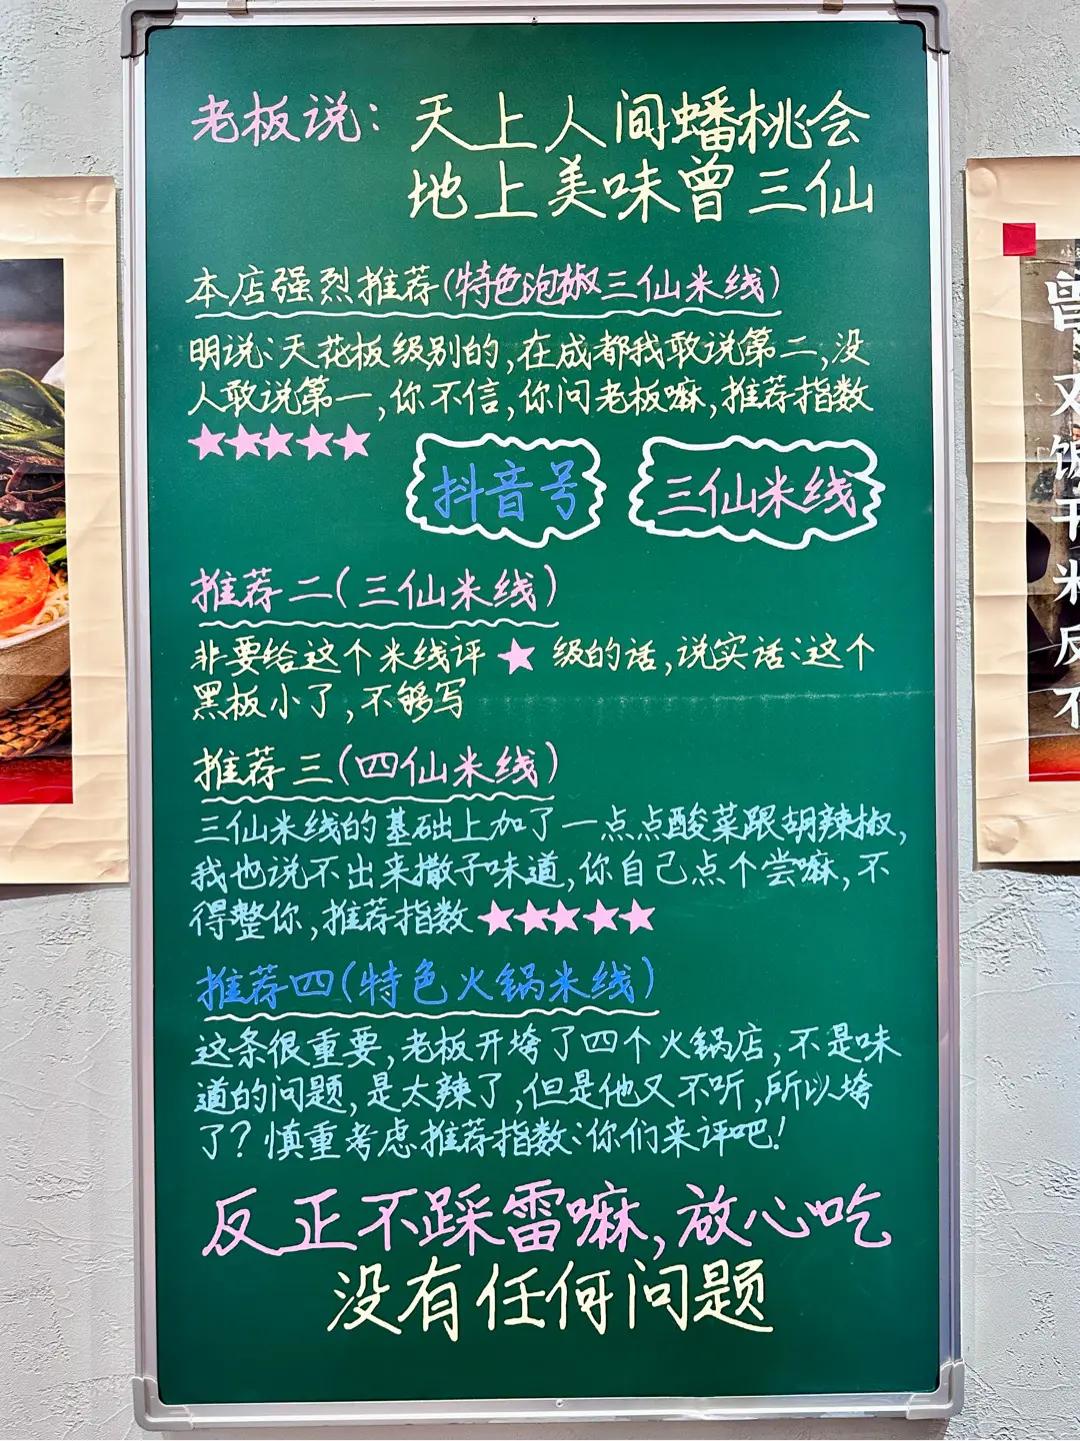 老板说：天上人间蟠桃会
地上美味曾三仙
本店强烈推荐(特色泡椒三仙米线)
明说：天花板级别的,在成都我敢说第二,没
人敢说第一,你不信,你问老板嘛,推荐指数
★★★★★
抖音号 三仙米线
推荐二(三仙米线)
非要给这个米线评★级的话,说实话：这个
黑板小了,不够写
推荐三(四仙米线)
三仙米线的基础上加了一点点酸菜跟胡辣椒,
我也说不出来撒子味道,你自己点个尝嘛,不
得整你,推荐指数★★★★★
推荐四(特色火锅米线)
这条很重要,老板开垮了四个火锅店,不是味
道的问题,是太辣了,但是他又不听,所以垮
了?慎重考虑推荐指数：你们来评吧!
反正不踩雷嘛,放心吃
没有任何问题
曾